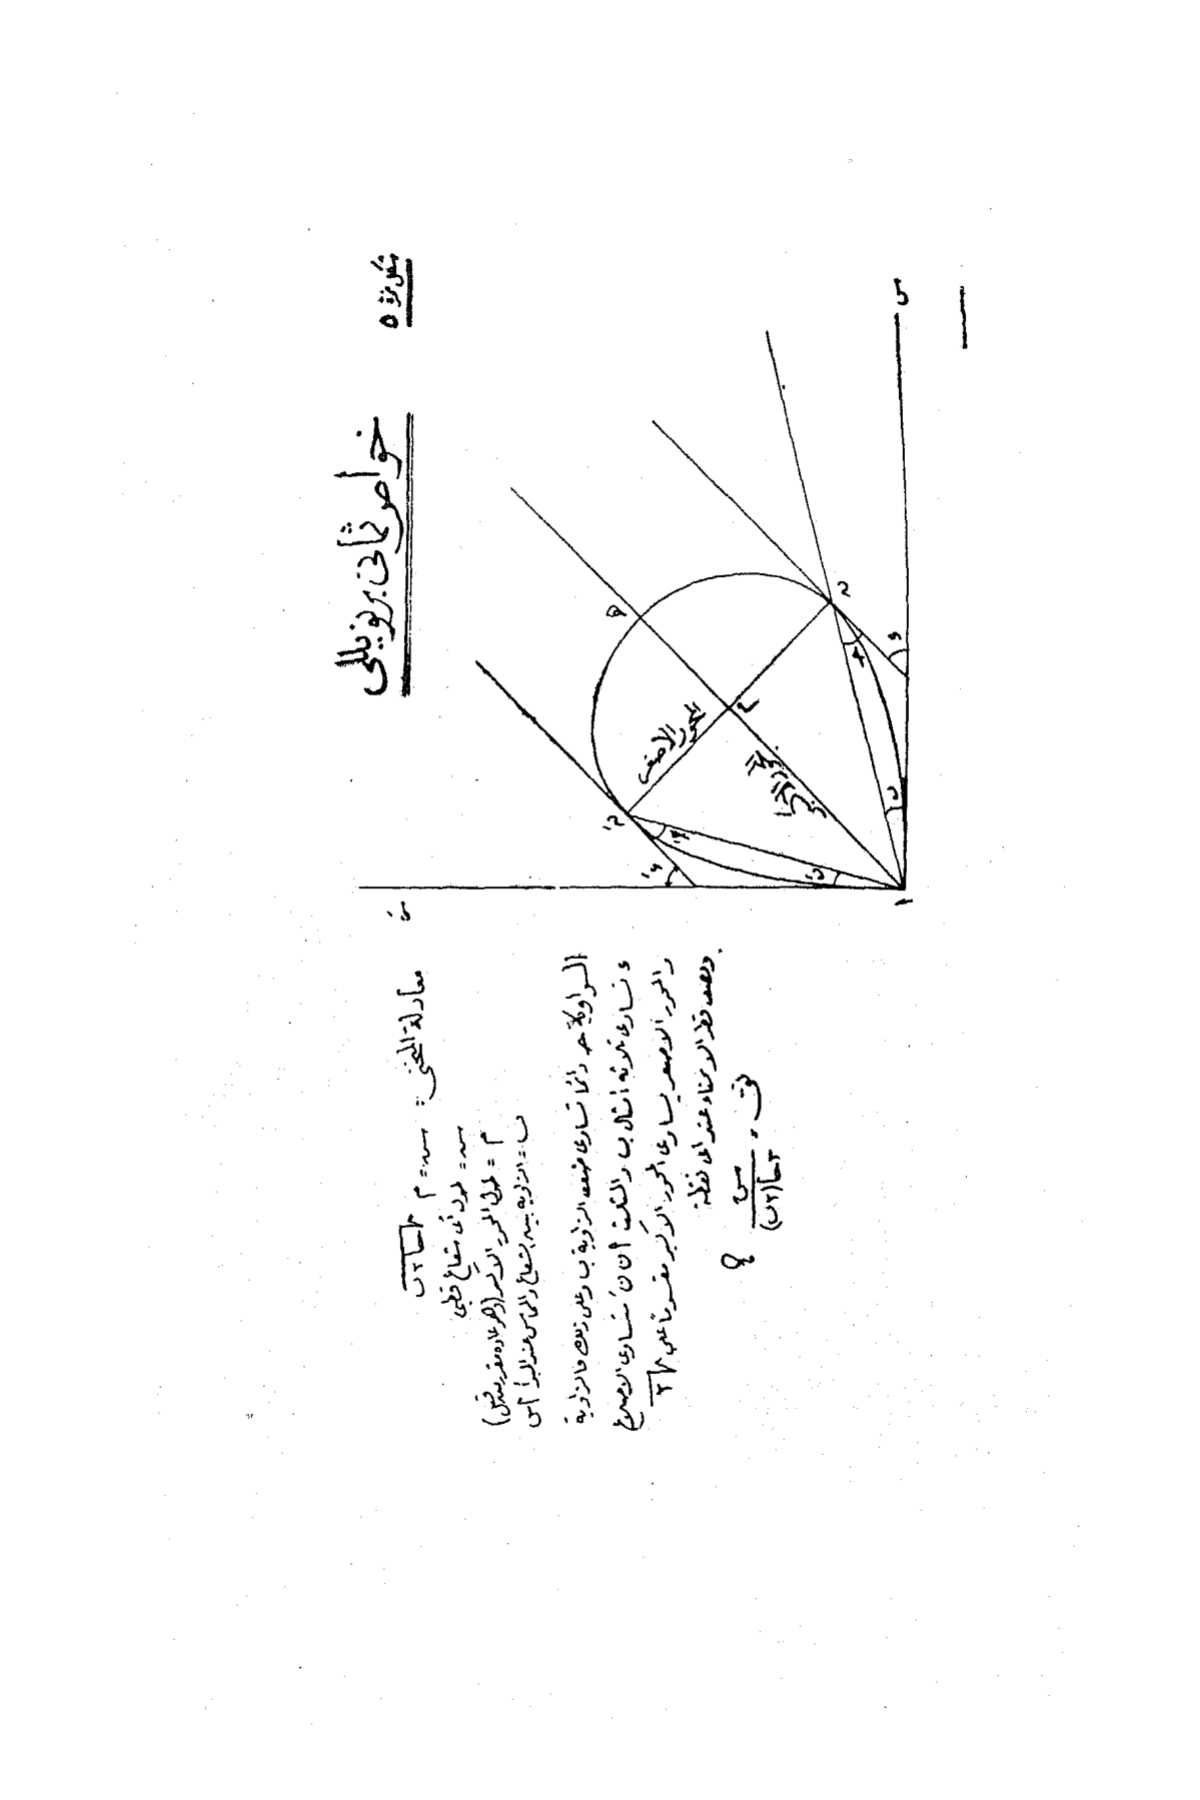 شكل نمرة ٥
خواص ثمانى برنويللى
س
سَ
هـ
م
ن
نَ
ء
ءَ
حـ
حـَ
ب
بَ
ا
المحور الأصغر
المحور الاكبر
معادلة المنحنى : س = م √حا٢ب
س = طول أى شعاع قطبى
م = طول المحور الاكبر (وهو عادة
ب = الزاوية بين الشعاع والمماس عند المبدأ ا س
الزاوية حـ دائما تساوى ضعف الزاوية ب وعلى ذلك فالزاوية
ء تساوى ثلاثة امثال ب والمثلث ا ن نَ متساوى الاضلاع
والمحور الاصغر يساوى المحور الاكبر مقسوماً على √٣
ونصف قطر الانحناء عند اى نقطة
نق = س / ٣حا(٢ب)